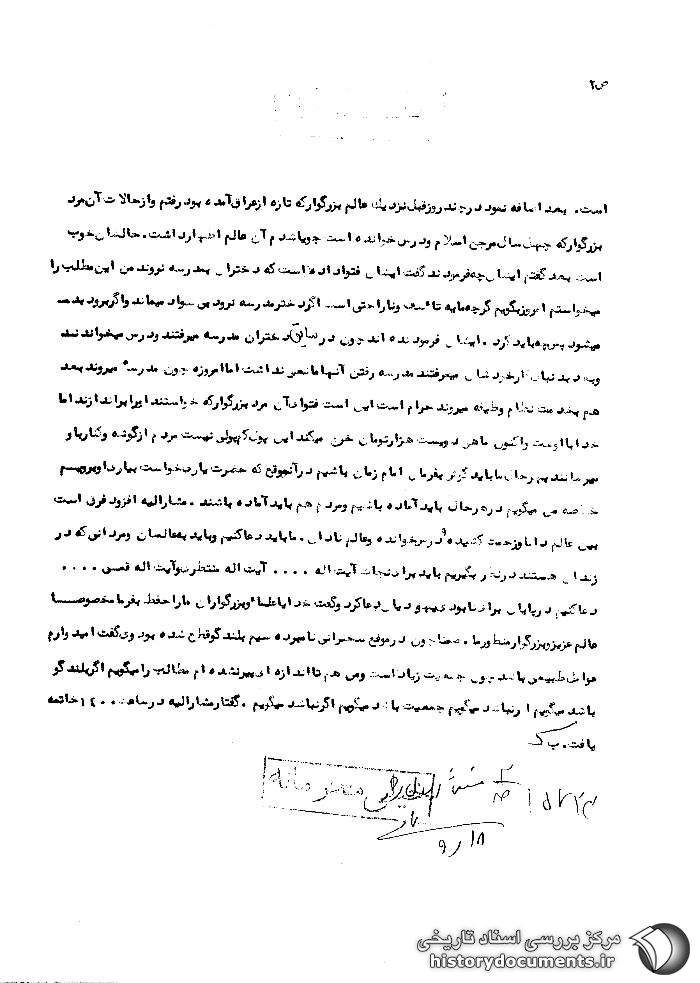 ص۲
است. بعد اضافه نمود در چند روز قبل نزد یک عالم بزرگوار که تازه از عراق آمده بود رفتم و از حالات آن مرد
بزرگوار که چهل سال مرجع اسلام و درس خوانده است جویا شدم آن عالم اظهار داشت. حالشان خوب
است بعد گفتم ایشان چه فرمودند گفت ایشان فتوا داده است که دختران بمدرسه نروند من این مطلب را
میخواستم امروز بگویم گرچه مایه تاسف و ناراحتی است اگر دختر مدرسه نرود بی سواد میماند و اگر برود بد
میشود پس چه باید کرد. ایشان فرموده اند چون در سابق دختران مدرسه میرفتند و درس میخواندند
و بعد بدنبال کار خودشان میرفتند مدرسه رفتن آنها مانعی نداشت اما امروزه چون مدرسه میروند بعد
هم بخدمت نظام وظیفه میروند حرام است این است فتوای آن مرد بزرگوار که خواستند او را براندازند اما
خدا با اوست و اکنون ماهی دویست هزار تومان خرج میکند این پول کمی نیست مردم از گوشه و کنار با و
میرسانند بهر حال ما باید گوش بفرمان امام زمان باشیم در آنموقع که حضرت یار خواست بیاری او برویم
خلاصه می گویم در هر حال باید آماده باشیم و مردم هم باید آماده باشند. مشارالیه افزود فرق است
بین عالم دانا و زحمت کشیده و درس خوانده و عالم نادان. ما باید دعا کنیم و باید به عالمان و مردانی که در
زندان هستند در نظر بگیریم باید برای نجات آیت اله .... آیت اله منتظری و آیت اله قمی ....
دعا کنیم در پایان برای نابودی یهودیان دعا کرد و گفت خدایا علما و بزرگواران ما را حفظ بفرما مخصوصا
عالم عزیز و بزرگوار منظور ما. ضمنا چون در موقع سخنرانی نامبرده سیم بلندگو قطع شده بود وی گفت امیدوارم
طبیعی باشد چون جمعیت زیاد است و من هم تا اندازه ای پیر نشده ام مطالب را میگویم اگر بلندگو
باشد میگویم اگر نباشد میگویم جمعیت باشد میگویم اگر نباشد میگویم. گفتار مشارالیه در ساعت ۱۲۰۰ خاتمه
یافت. ب ک
خیلی محرمانه
مرکز بررسی اسناد تاریخی
historydocuments.ir